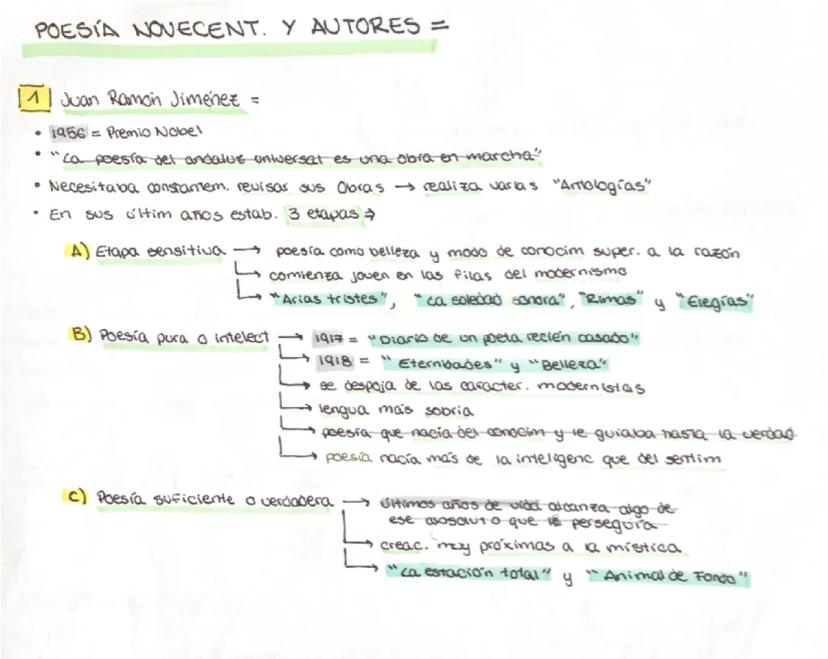 POESÍA NOVECENT. Y AUTORES =
1 Juan Ramón Jiménez =
• 1956 = Premio Nobel
• "La poesía del andaluz universal es una obra en marcha"
• Necesitaba constantem. revisar sus Obras → realiza varias "Antologías"
• En sus últim años estab. 3 etapas ⇒
A) Etapa sensitiva → poesía como belleza y modo de conocim super. a la razón
→ comienza joven en las filas del modernismo
→ "Arias tristes", "La soledad sonora", "Rimas" y "Elegías"
B) Poesía pura o intelect → 1917 = "Diario de un poeta recién casado"
→ 1918 = "Eternidades" y "Belleza"
→ se despoja de las caracter. modernistas
→ lengua más sobria
→ poesía que nacía del conocim y le guiaba hasta la verdad
→ poesía nacía más de la inteligenc que del sentim
C) Poesía suficiente o verdadera → últimos años de vida alcanza algo de
ese absoluto que le perseguía
→ creac. muy próximas a la mística
→ "La estación total" y "Animal de Fondo"